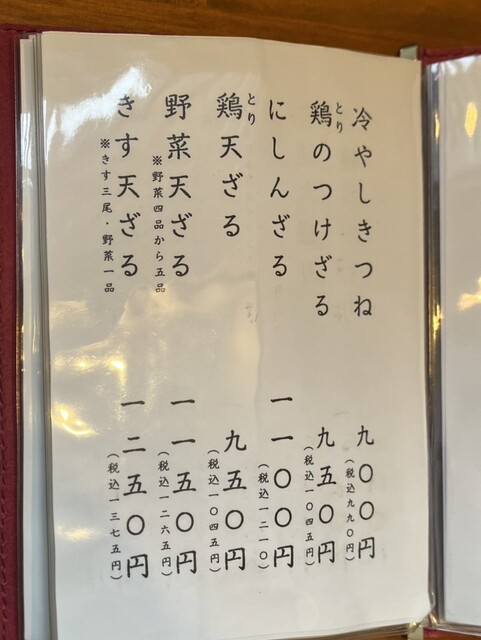 冷やしきつね 九〇〇円
(税込九九〇円)
鶏のつけざる 九五〇円
とり
(税込一〇四五円)
にしんざる 一一〇〇円
(税込一二一〇)
鶏天ざる 九五〇円
とり
(税込一〇四五円)
野菜天ざる 一一五〇円
※野菜四品から五品
(税込一二六五円)
きす天ざる 一二五〇円
※きす三尾・野菜一品
(税込一三七五円)